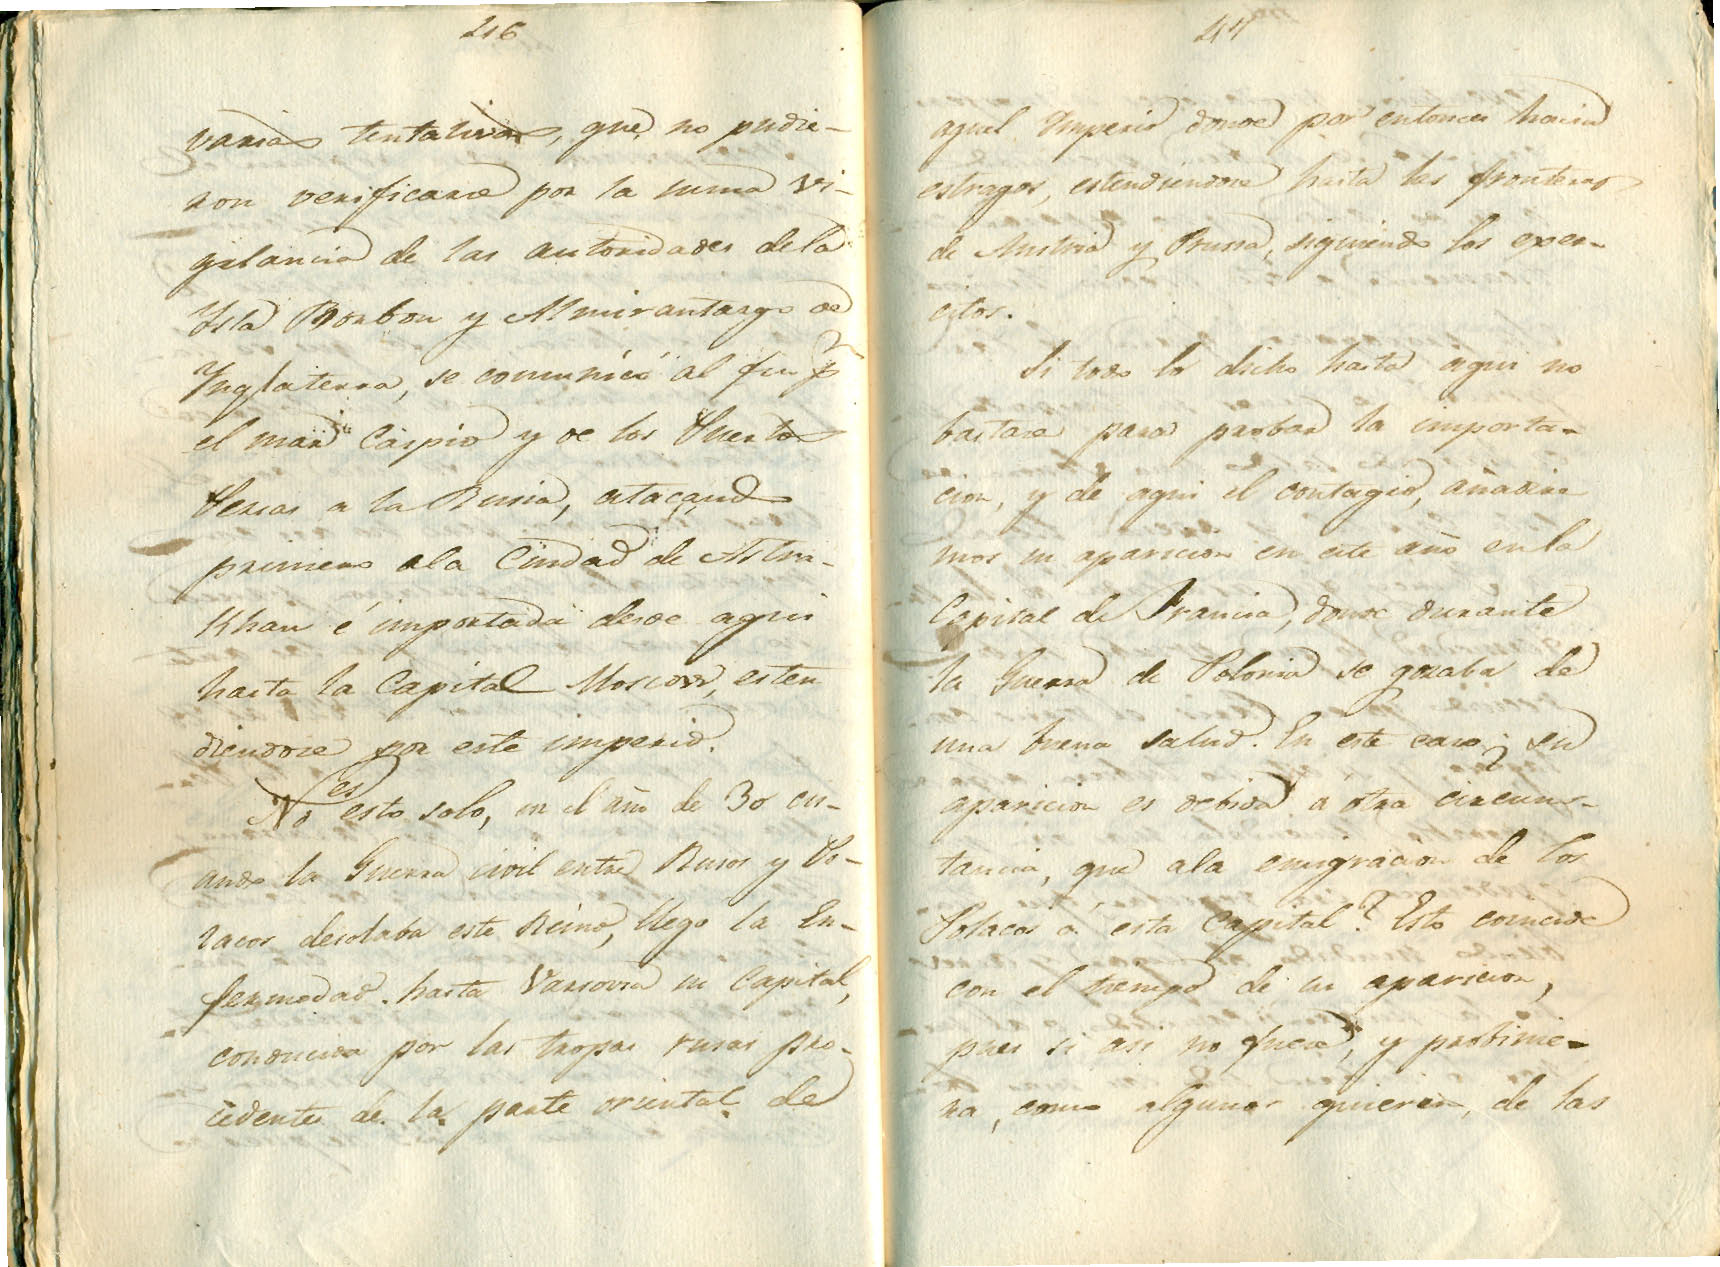 216
varias tentativas, que no pudie-
ron verificarse por la suma vi-
gilancia de las autoridades dela
Ysla Borbon y Almirantazgo de
Ynglaterra, se comunicó al fin pr
el mar Caspio y de los Puertos
Persas a la Rusia, atacando
primero ala Ciudad de Astra-
Khan é importada desde aqui
hasta la Capital Moscow, esten
diendose por este imperio.
No es esto solo, en el año de 30 cu-
ando la Guerra civil entre Rusos y Po-
lacos desolaba este Reino, llego la En-
fermedad hasta Varsovia su Capital,
conducida por las tropas rusas pro-
cedentes de la parte oriental de
aquel Imperio donde por entonces hacia
estragos, estendiendose hasta las fronteras
de Austria y Prusia, siguiendo los exer-
citos.
Si todo lo dicho hasta aqui no
bastase para probar la importa-
cion, y de aqui el contagio, añadire
mos su aparicion en este año en la
Capital de Francia, donde durante
la Guerra de Polonia se gozaba de
una buena salud. En este caso ¿ su
aparicion es debida a otra circuns-
tancia, que ala emigracion de los
Polacos á esta Capital? Esto coincide
con el tiempo de su aparicion,
pues si asi no fuese, y probinie-
ra, como algunos quieren, de las